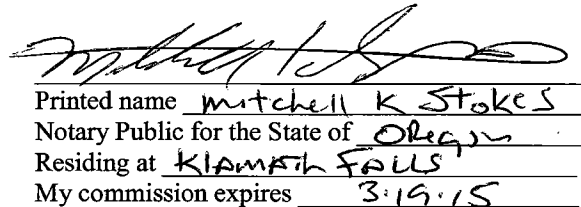 Printed name mitchell K Stokes
Notary Public for the State of Oregon
Residing at Klamath FALLS
My commission expires 3.19.15